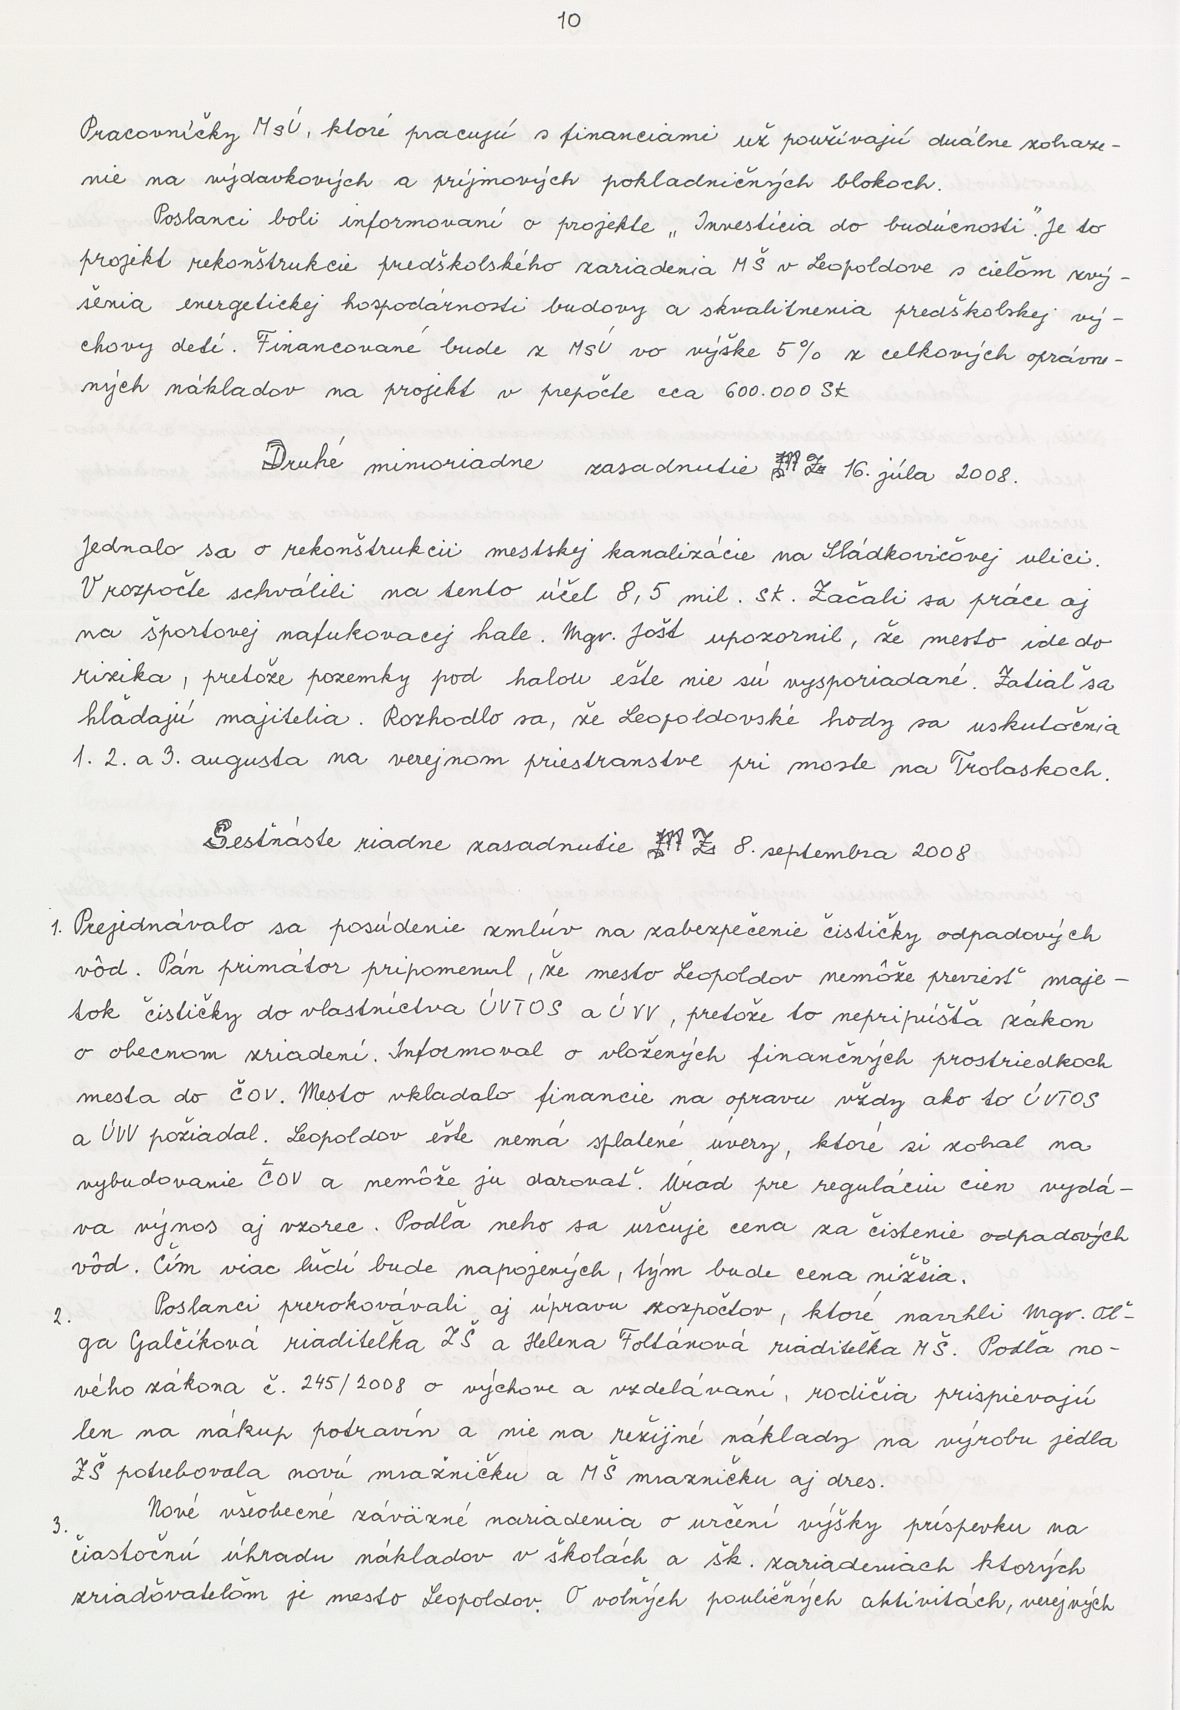 10
Pracovníčky MsÚ, ktoré pracujú s financiami už používajú duálne zobraze-
nie na výdavkových a príjmových pokladničných blokoch.
Poslanci boli informovaní o projekte „Investícia do budúcnosti". Je to
projekt rekonštrukcie predškolského zariadenia MŠ v Leopoldove s cieľom zvý-
šenia energetickej hospodárnosti budovy a skvalitnenia predškolskej vý-
chovy detí. Financované bude z MsÚ vo výške 5% z celkových oprávne-
ných nákladov na projekt v prepočte cca 600.000 Sk
Druhé mimoriadne zasadnutie MZ 16. júla 2008.
Jednalo sa o rekonštrukcii mestskej kanalizácie na Sládkovičovej ulici.
V rozpočte schválili na tento účel 8,5 mil. Sk. Začali sa práce aj
na športovej nafukovacej hale. Mgr. Jošt upozornil, že mesto ide do
rizika, pretože pozemky pod halou ešte nie sú vysporiadané. Zatiaľ sa
hľadajú majitelia. Rozhodlo sa, že Leopoldovské hody sa uskutočnia
1. 2. a 3. augusta na verejnom priestranstve pri moste na Trolaskoch.
Šestnáste riadne zasadnutie MZ 8. septembra 2008
1. Prejednávalo sa posúdenie zmlúv na zabezpečenie čističky odpadových
vôd. Pán primátor pripomenul, že mesto Leopoldov nemôže previesť maje-
tok čističky do vlastníctva ÚVTOS a ÚVV, pretože to nepripúšťa zákon
o obecnom zriadení. Informoval o vložených finančných prostriedkoch
mesta do ČOV. Mesto vkladalo financie na opravu vždy ako to ÚVTOS
a ÚVV požiadal. Leopoldov ešte nemá splatené úvery, ktoré si zobral na
vybudovanie ČOV a nemôže ju darovať. Úrad pre reguláciu cien vydá-
va výnos aj vzorec. Podľa neho sa určuje cena za čistenie odpadových
vôd. Čím viac ľudí bude napojených, tým bude cena nižšia.
2. Poslanci prerokovávali aj úpravu rozpočtov, ktoré navrhli Mgr. Oľ-
ga Galčíková riaditeľka ZŠ a Helena Foltánová riaditeľka MŠ. Podľa no-
vého zákona č. 245/2008 o výchove a vzdelávaní, rodičia prispievajú
len na nákup potravín a nie na režijné náklady na výrobu jedla
ZŠ potrebovala novú mrazničku a MŠ mrazničku aj dres.
3. Nové všeobecné záväzné nariadenia o určení výšky príspevku na
čiastočnú úhradu nákladov v školách a šk. zariadeniach ktorých
zriaďovateľom je mesto Leopoldov. O voľných pouličných aktivitách, verejných